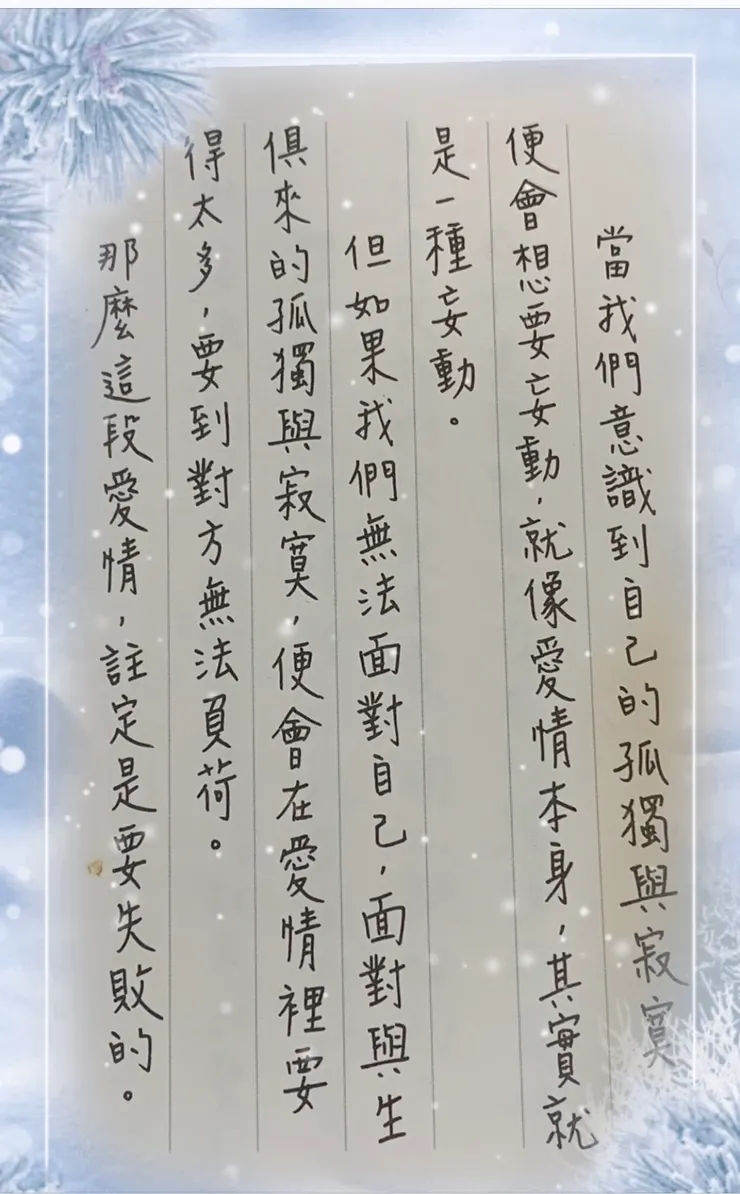 當我們意識到自己的孤獨與寂寞
便會想要妄動，就像愛情本身，其實就
是一種妄動。
但如果我們無法面對自己，面對與生
俱來的孤獨與寂寞，便會在愛情裡要
得太多，要到對方無法負荷。
那麼這段愛情，註定是要失敗的。